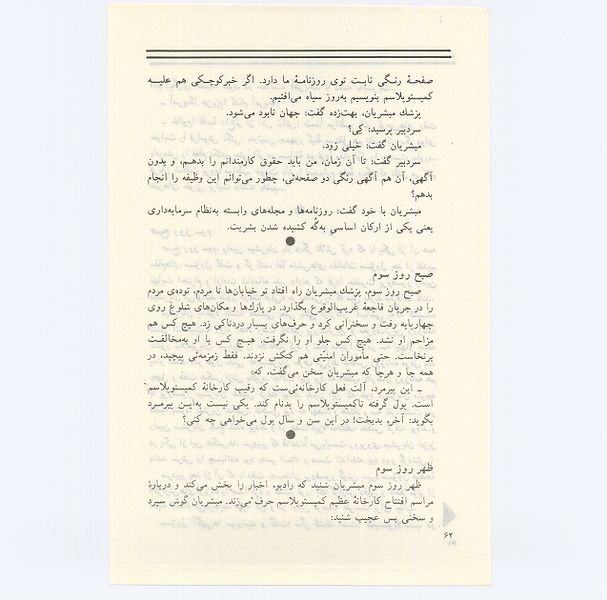 صفحهٔ رنگی ثابت توی روزنامهٔ ما دارد. اگر خبرکوچکی هم علیــه
کمیستوپلاسم بنویسیم به‌روز سیاه می‌افتیم.
پزشك مبشریان، بهت‌زده گفت: جهان نابود می‌شود.
سردبیر پرسید: کِی؟
مبشریان گفت: خیلی زود.
سردبیر گفت: تا آن زمان، من باید حقوق کارمندانم را بدهـم، و بدون
آگهی، آن هم آگهی رنگی دو صفحه‌ئی، چطور می‌توانم این وظیفه را انجام
بدهم؟
مبشریان با خود گفت: روزنامه‌ها و مجله‌های وابسته به‌نظام سرمایه‌داری
یعنی یکی از ارکان اساسیِ به‌گُه کشیده شدن بشریت.
●
صبح روز سوم
صبح روز سوم، پزشك مبشریان راه افتاد تو خیابان‌ها تا مردم، توده‌ی مردم
را در جریان فاجعهٔ غریب‌الوقوع بگذارد. در پارك‌ها و مکان‌های شلوغ روی
چهارپایه رفت و سخنرانی کرد و حرف‌های بسیار دردناکی زد. هیچ کس هم
مزاحم او نشد. هیچ کس جلو او را نگرفت. هیـچ کس با او به‌مخالفـت
برنخاست. حتی مأموران امنیتی هم کتکش نزدند. فقط زمزمه‌ئی پیچید، در
همه جا و هرجا که مبشریان سخن می‌گفت، که:
ـ این پیرمرد، آلت فعل کارخانه‌ئی‌ست که رقیب کارخانهٔ کمیستوپلاسم
است. پول گرفته تاکمیستوپلاسم را بدنام کند. یکی نیست به‌ایـن پیرمـرد
بگوید: آخر، بدبخت! در این سن و سال پول می‌خواهی چه کنی؟
●
ظهر روز سوم
ظهر روز سوم مبشریان شنید که رادیو، اخبار را پخش می‌کند و دربارهٔ
مراسم افتتاح کارخانهٔ عظیم کمیستوپلاسم حرف می‌زند. مبشریان گوش سپرد
و سخنی بس عجیب شنید:
۶۲